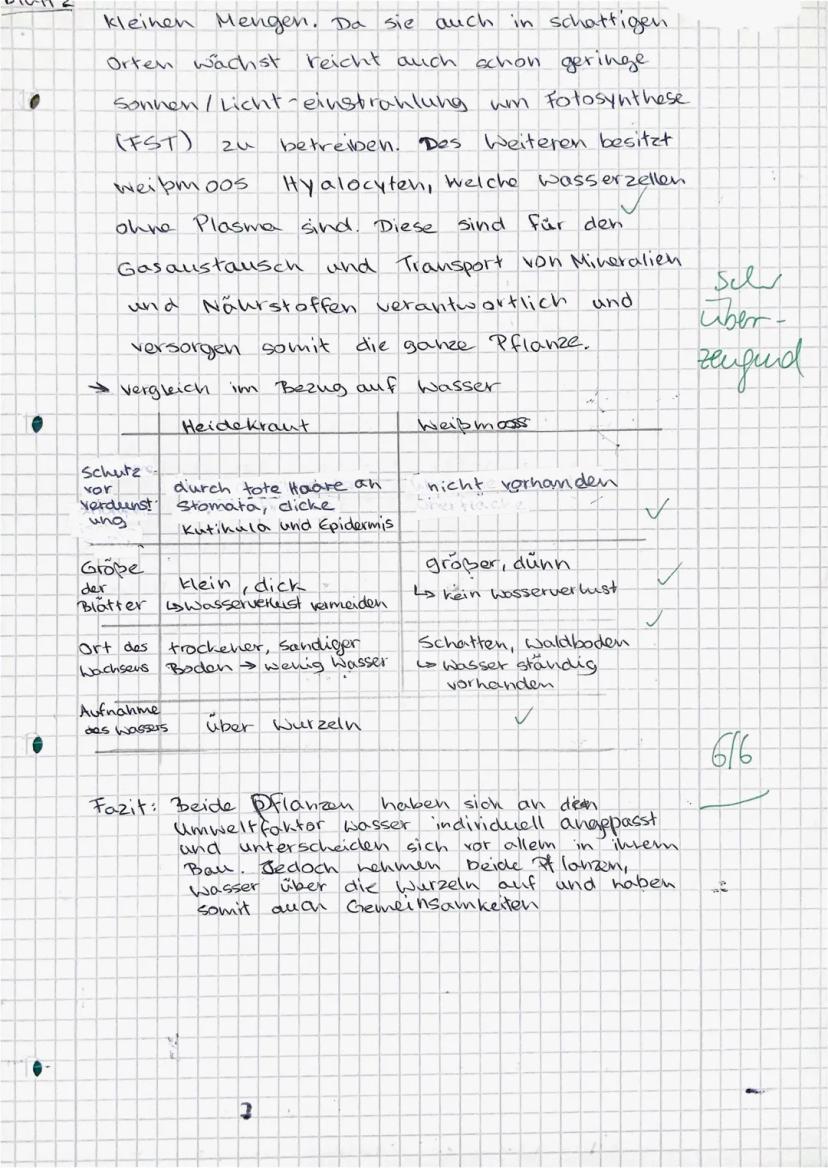 kleinen Mengen. Da sie auch in schattigen
Orten wächst reicht auch schon geringe
Sonnen/Licht-einstrahlung um Fotosynthese
(FST) zu betreiben. Des Weiteren besitzt
Weißmoos Hyalocyten, welche Wasserzellen
ohne Plasma sind. Diese sind für den
Gasaustausch und Transport von Mineralien
und Nährstoffen verantwortlich und
versorgen somit die ganze Pflanze.
Sehr
über-
zeugend
→ Vergleich im Bezug auf Wasser
Heidekraut Weißmoos
Schutz vor Verdunstung durch tote Haare an Stomata, dicke Kutikula und Epidermis nicht vorhanden
Größe der Blätter klein, dick ↳ Wasserverlust vermeiden größer, dünn ↳ kein Wasserverlust
Ort des Wachsens trockener, sandiger Boden → wenig Wasser Schatten, Waldboden ↳ Wasser ständig vorhanden
Aufnahme des Wassers über Wurzeln
6/6
Fazit: Beide Pflanzen haben sich an den
Umweltfaktor Wasser individuell angepasst
und unterscheiden sich vor allem in ihrem
Bau. Jedoch nehmen beide Pflanzen,
Wasser über die Wurzeln auf und haben
somit auch Gemeinsamkeiten